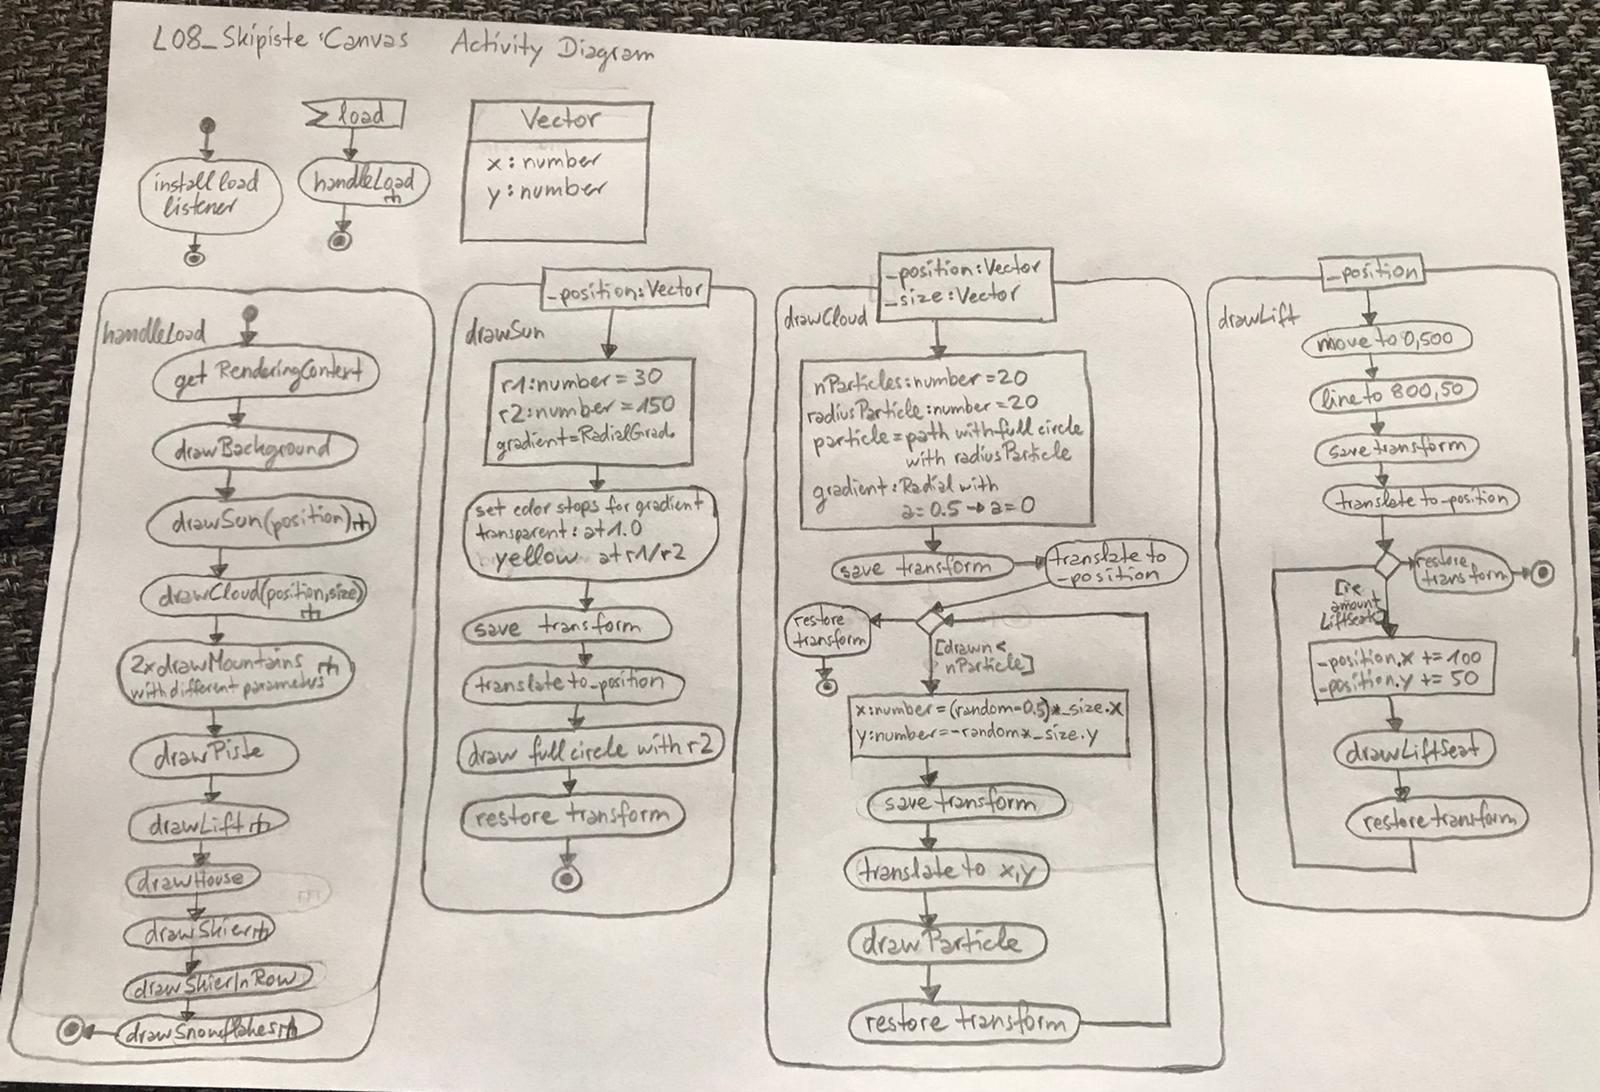 L08_Skipiste Canvas Activity Diagram
install load
listener
load
handleLoad
Vector
x: number
y: number
handleLoad
get RenderingContext
drawBackground
drawSun(position)
drawCloud(position,size)
2xdrawMountains
with different parameters
drawPiste
drawLift
drawHouse
drawSkier
drawSkierInRow
drawSnowflakes
_position:Vector
drawSun
r1:number = 30
r2:number = 150
gradient=RadialGrad.
set color stops for gradient
transparent: at 1.0
yellow at r1/r2
save transform
translate to_position
draw full circle with r2
restore transform
_position:Vector
_size:Vector
drawCloud
nParticles:number = 20
radiusParticle:number = 20
particle = path with full circle
with radiusParticle
gradient: Radial with
a = 0.5 → a = 0
save transform
translate to
_position
restore
transform
[drawn <
nParticle]
x:number = (random-0.5)*_size.x
y:number = -random*_size.y
save transform
translate to x,y
draw Particle
restore transform
_position
drawLift
move to 0,500
line to 800,50
save transform
translate to_position
restore
transform
amount
LiftSeat
_position.x += 100
_position.y += 50
drawLiftSeat
restore transform